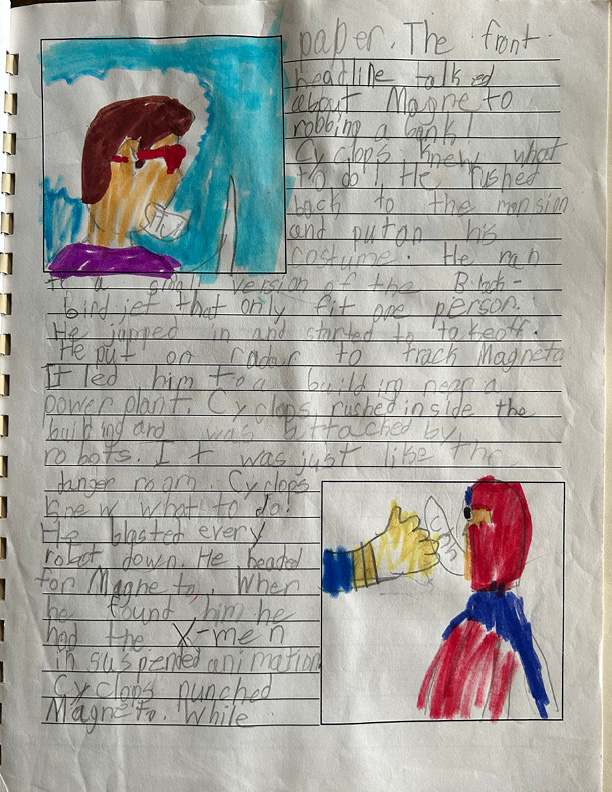 paper. The front
headline talked
about Magneto
robbing a bank!
Cyclops knew what
to do! He rushed
back to the mansion
and put on his
costume. He ran
to a small version of the Black-
bird jet that only fit one person.
He jumped in and started to takeoff.
He put on radar to track Magneto
It led him to a building near a
power plant. Cyclops rushed inside the
building and was attacked by
robots. It was just like the
danger room. Cyclops
knew what to do.
He blasted every
robot down. He headed
for Magneto. When
he found him he
had the X-men
in suspended animation
Cyclops punched
Magneto. While